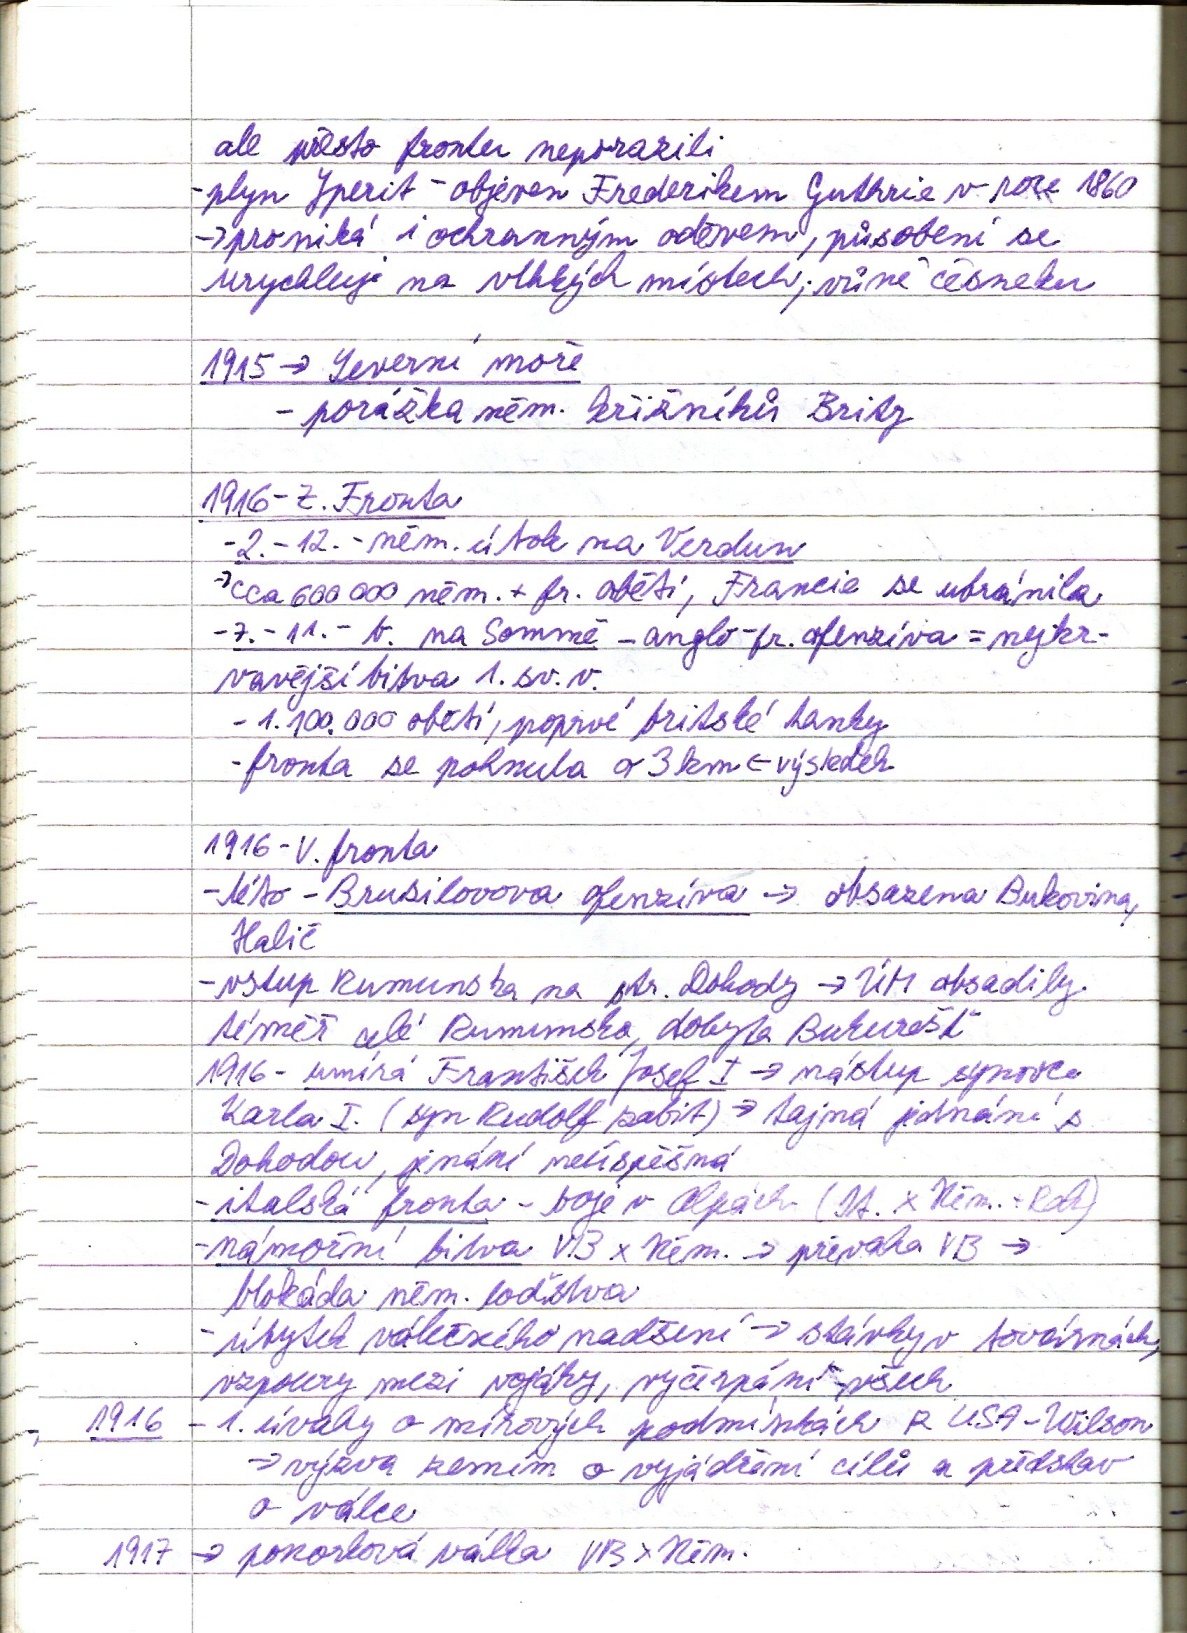 ale přesto frontu neporazili
- plyn Yperit - objeven Frederikem Guthrie v roce 1860
→ proniká i ochranným oděvem, působení se
urychluje na vlhkých místech, vůně česneku
1915 → Severní moře
- porážka něm. křižníků Brity
1916 - Z. Fronta
- 2. - 12. - něm. útok na Verdun
→ cca 600 000 něm. + fr. obětí, Francie se ubránila
- 7. - 11. - b. na Sommě - anglo-fr. ofenzíva = nejkr-
vavější bitva 1. sv. v.
- 1.100.000 obětí, poprvé britské tanky
- fronta se pohnula o 3 km ← výsledek
1916 - V. fronta
- léto - Brusilovova ofenzíva → obsazena Bukovina,
Halič
- vstup Rumunska na str. Dohody → ÚM obsadily
téměř celé Rumunsko, dobyta Bukurešť
1916 - umírá František Josef I → nástup synovce
Karla I. (syn Rudolf zabit) → tajná jednání s
Dohodou, jenání neúspěšná
- italská fronta - boje v Alpách (It. x Něm. + Rak)
- námořní bitva VB x Něm. → převaha VB →
blokáda něm. loďstva
- úbytek válečného nadšení → stávky v továrnách,
vzpoury mezi vojáky, vyčerpání všech
1916 - 1. úvahy o mírových podmínkách P USA - Wilson
→ výzva zemím o vyjádření cílů a představ
o válce
1917 → ponorková válka VB x Něm.